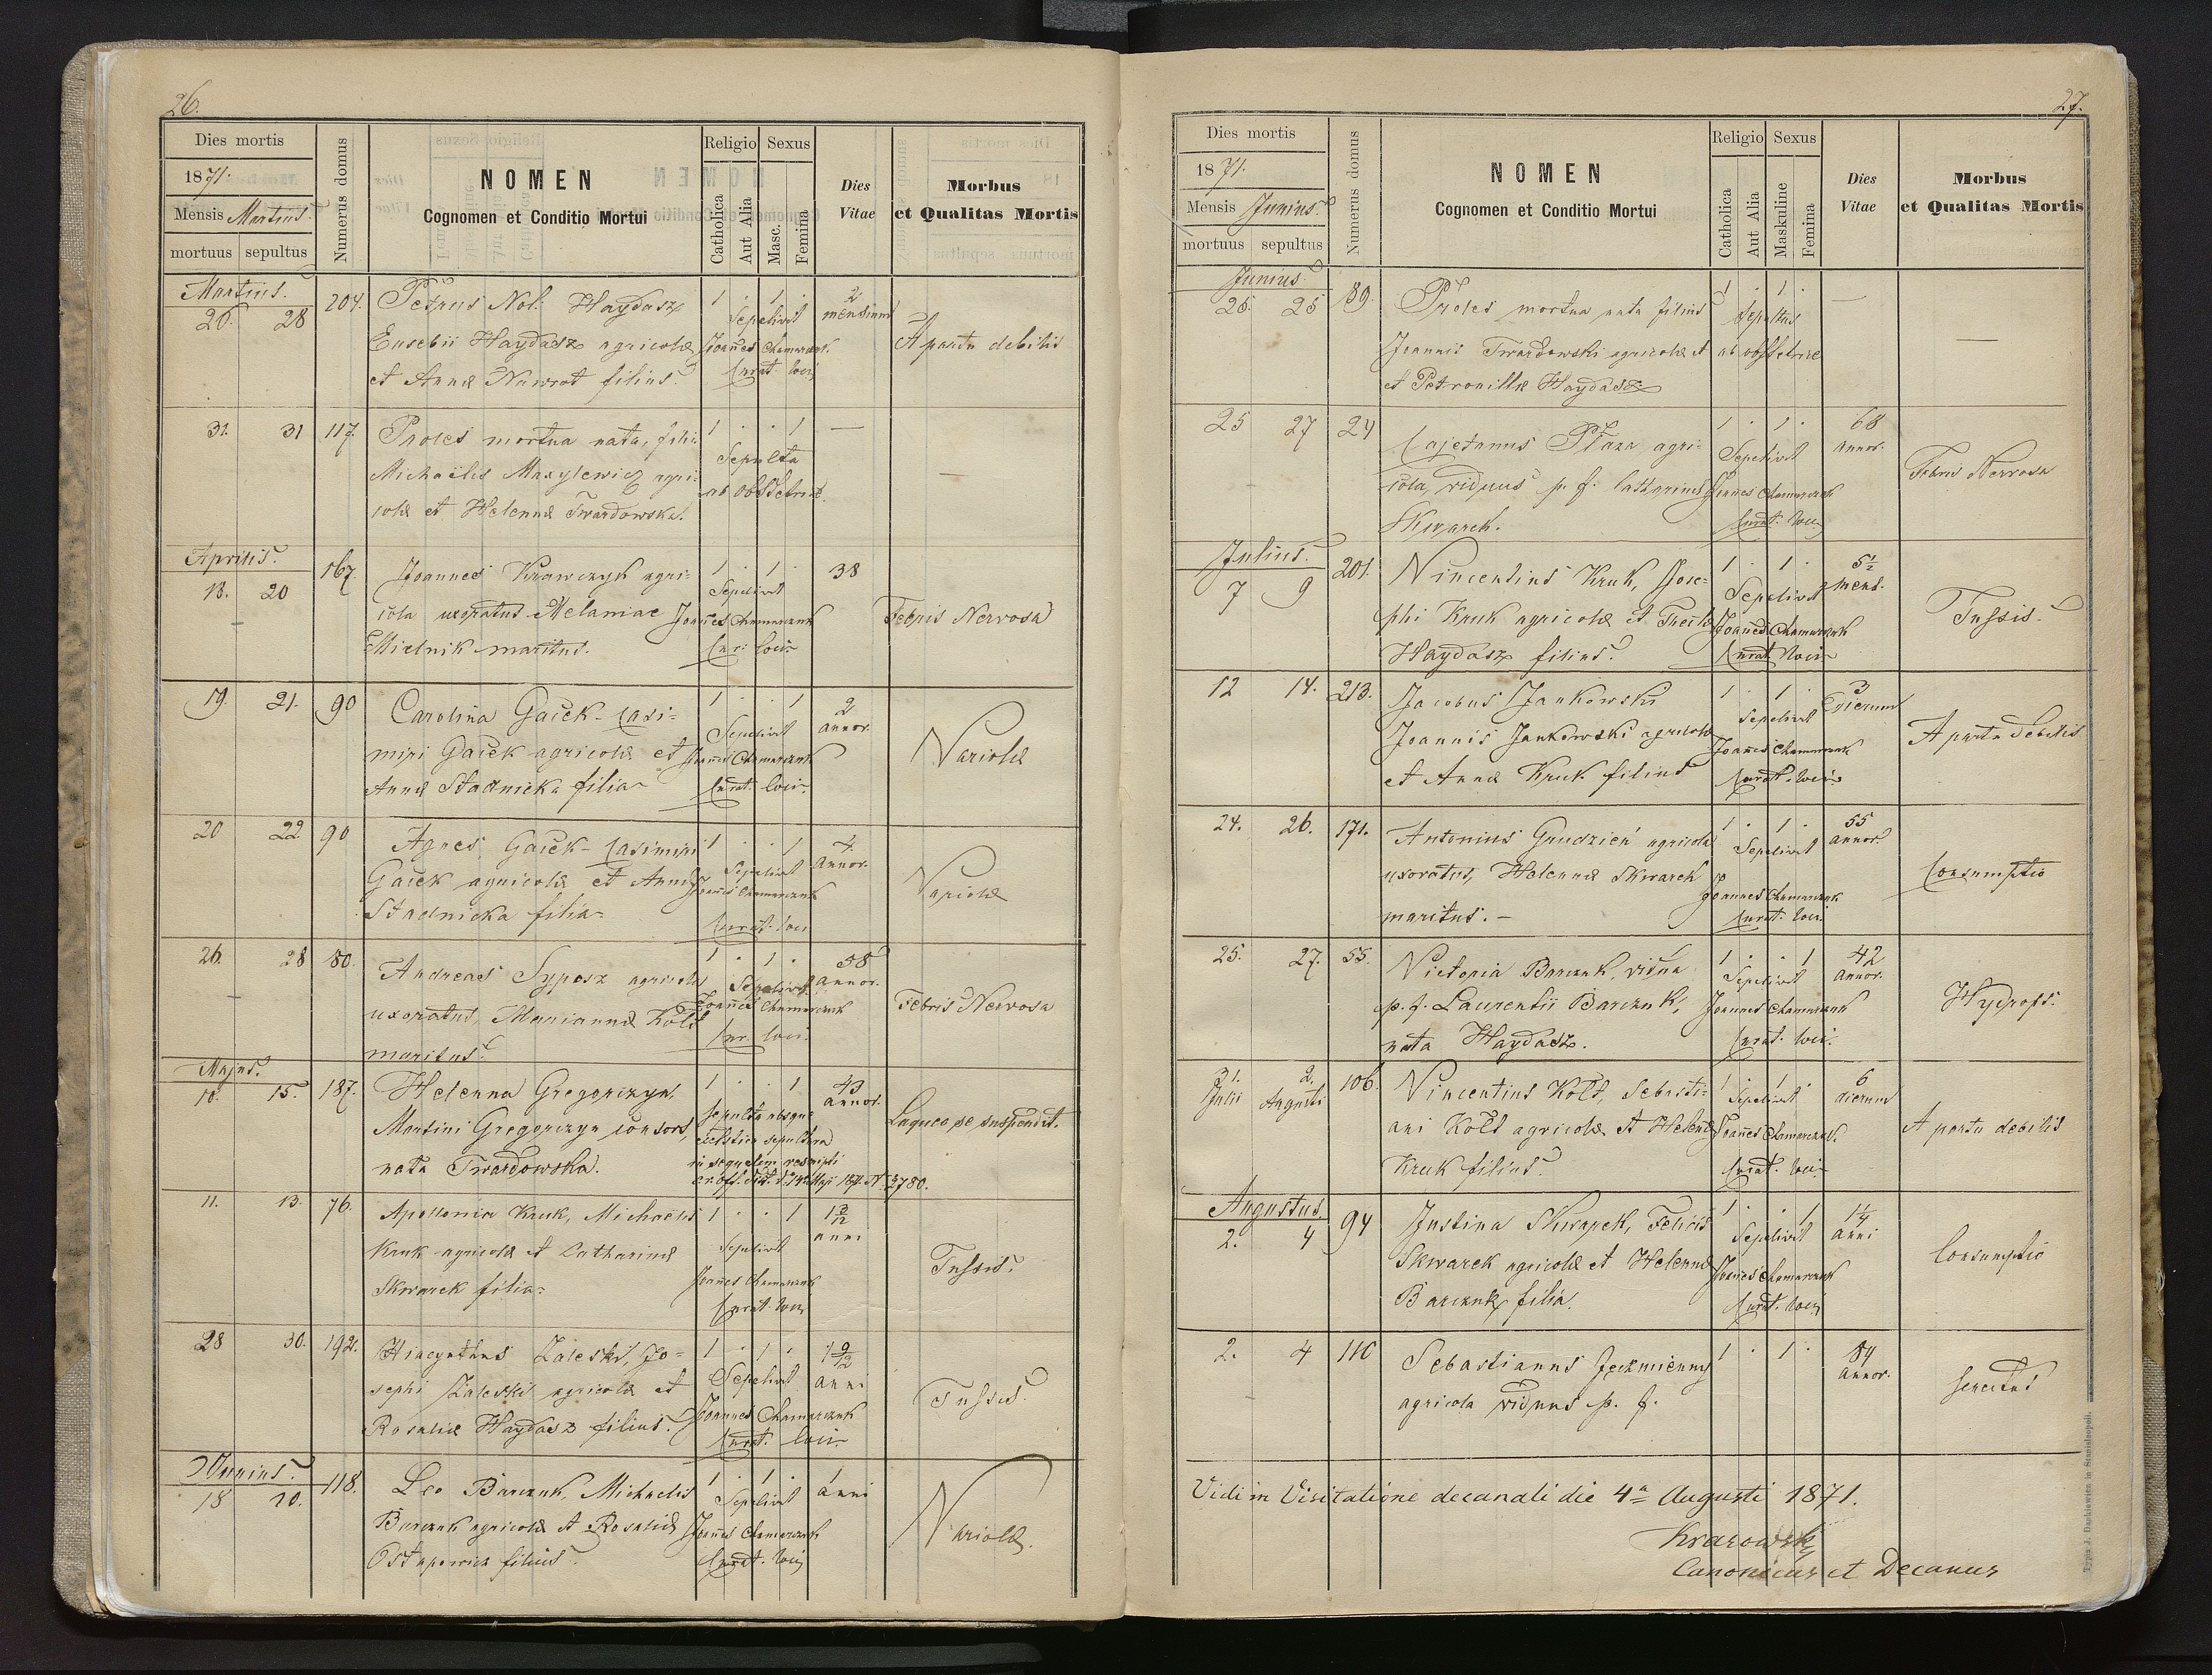 26.
Dies mortis
1871.
Mensis Martius.
mortuus sepultus
Numerus domus
NOMEN
Cognomen et Conditio Mortui
Religio
Catholica
Aut Alia
Sexus
Masc.
Femina
Dies
Vitae
Morbus
et Qualitas Mortis
Martius.
26. 28 204. Petrus Haydasz 1 . 1 . 2 mensium
Eusebii Haydasz agricolæ Sepelivit A partu debilis
et Annæ Nawrot filius. Joannes Chamarczuk
Curat. loci
31. 31 117. Proles mortua nata, filia 1 . . 1 —
Michaëlis Maxylewicz agri- Sepulta —
colæ et Helennæ Twardowska. ab obstetrice
Aprilis.
18. 20 167. Joannes Krawczyk agri- 1 . 1 . 38
cola uxoratus Melaniae Sepelivit Febris Nervosa
Mielnik maritus. Joannes Chamarczuk
Cur: loci
19. 21. 90 Carolina Gacek - Casi- 1 . . 1 2 annor.
miri Gacek agricolæ et Sepelivit Variolæ
Annæ Stadnicka filia Joannes Chamarczuk
Curat. loci.
20 22 90 Agnes Gacek - Casimiri 1 . . 1 4. Annor.
Gacek agricolæ et Annæ Sepelivit Variolæ
Stadnicka filia Joannes Chamarczuk
Curat. loci
26. 28 80. Andreas Syposz agricola 1 . 1 . 58 annor.
uxoratus, Mariannæ Kołt Sepelivit Febris Nervosa
maritus. Joannes Chamarczuk
Cur. loci.
Majus.
10. 15. 187. Helenna Gregorczyn, 1 . . 1 43 annor.
Martini Gregorczyn consors, Sepulta absque Laqueo se suspendit.
nata Twardowska. sepultura
in sequelam rescripti
Maji 187 N. 3780.
11. 13. 76. Apollonia Kruk, Michaelis 1 . . 1 anni
Kruk agricolæ et Catharinæ Sepelivit Tussis.
Skwarek filia Joannes Chamarczuk
Curat. loci
28 30. 192. Hiacynthus Zaleski, Jo- 1 . 1 . 1 9/12 anni
sephi Zaleski agricolæ et Sepelivit Tussis
Rosaliæ Haydasz filius. Joannes Chamarczuk
Curat. loci
Junius.
18 20. 118. Leo Barczuk, Michaelis 1 . 1 . 1 anni
Barczuk agricolæ et Rosaliæ Sepelivit Variolæ.
Ostapowicz filius. Joannes Chamarczuk
Curat. loci
27.
Dies mortis
1871.
Mensis Junius.
mortuus sepultus
Numerus domus
NOMEN
Cognomen et Conditio Mortui
Religio
Catholica
Aut Alia
Sexus
Maskuline
Femina
Dies
Vitae
Morbus
et Qualitas Mortis
Junius.
25. 25 89. Proles mortua nata filius 1 . 1 . —
Joannis Twardowski agricolæ Sepultus —
et Petronillæ Haydasz ab obstetrice
25 27 24 Cajetanus Płaza agri- 1 . 1 . 68 annor.
cola, viduus p. f. Catharinæ Sepelivit Febris Nervosa
Skwarek. Joannes Chamarczuk
Curat. loci
Julius.
7 9 201. Vincentius Kruk, Jose- 1 . 1 . 5½ mens.
phi Kruk agricolæ et Theclæ Sepelivit Tussis.
Haydasz filius. Joannes Chamarczuk
Curat. loci
12 14. 213. Jacobus Jankowski 1 . 1 . 3 dierum
Joannis Jankowski agricolæ Sepelivit A partu debilis
et Annæ Kruk filius Joannes Chamarczuk
Curat. loci
24. 26. 171. Antonius Grudzień agricola 1 . 1 . 55 annor.
uxoratus, Helennæ Skwarek Sepelivit Consumptio
maritus. - Joannes Chamarczuk
Curat. loci.
25. 27. 55. Victoria Barczuk, vidua 1 . . 1 42 annor.
p. f. Laurentii Barczuk, Sepelivit Hydrops.
nata Haydasz. Joannes Chamarczuk
Curat. loci.
31. Julii 2. Augusti 106. Vincentius Kołt, Sebasti- 1 . 1 . 6 dierum
ani Kołt agricolæ et Helenæ Sepelivit A partu debilis
Kruk filius. Joannes Chamarczuk
Curat. loci
Augustus.
2. 4 94 Justina Skwarek, Felicis 1 . . 1 1¼ anni
Skwarek agricolæ et Helennæ Sepelivit Consumptio
Barczuk filia. Joannes Chamarczuk
Curat. loci
2. 4 110 Sebastianus Jeczmienny 1 . 1 . 84 annor.
agricola viduus p. f. senectus
Vidi in Visitatione decanali die 4ª Augusti 1871.
Krasowski
Canonicus et Decanus
Typis J. Dankiewicz in Stanislaopoli.